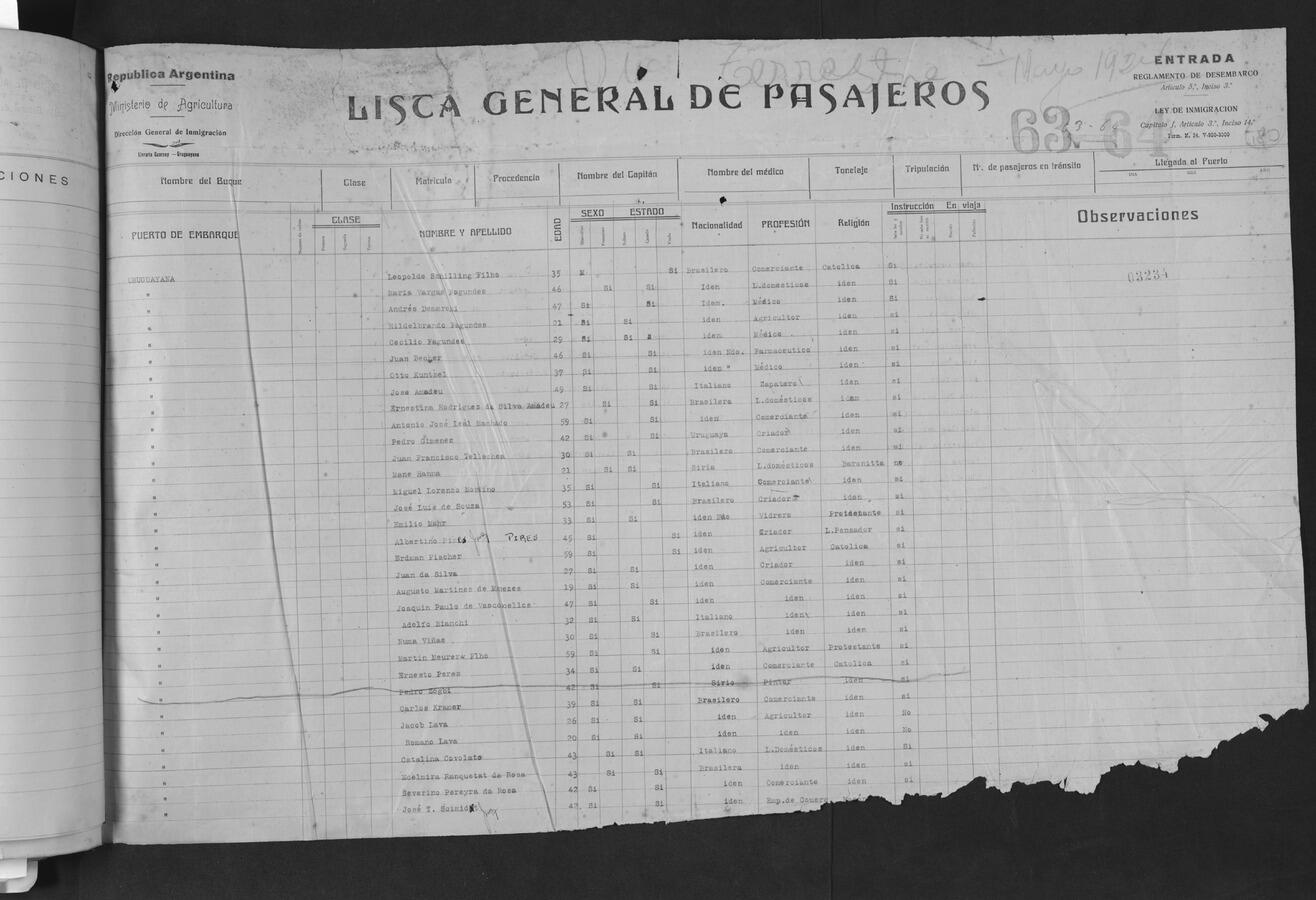 CIONES
Republica Argentina
Ministerio de Agricultura
Dirección General de Inmigración
LISTA GENERAL DE PASAJEROS
Mayo
63
64
ENTRADA
REGLAMENTO DE DESEMBARCO
Artículo 5°, Inciso 3°
LEY DE INMIGRACION
Capítulo I, Artículo 3°, Inciso 14°
Nombre del Buque Clase Matrícula Procedencia Nombre del Capitán Nombre del médico Tonelaje Tripulación N°. de pasajeros en tránsito Llegada al Puerto
DIA MES AÑO
PUERTO DE EMBARQUE CLASE NOMBRE Y APELLIDO EDAD SEXO ESTADO Nacionalidad PROFESIÓN Religión Instrucción En viaje Observaciones
03234
URUGUAYANA Leopoldo Schilling Filho 35 M Si Brasilero Comerciante Catolica Si
" Maria Vargas Fagundes 46 Si Si Iden L.domésticos iden Si
" Andrés 47 Si Si Iden. Médico iden Si
" Hildelbrando Fagundes 21 Si Si iden Agricultor iden si
" Cecilio Fagundes 29 Si Si iden Médico iden si
" Juan Becker 46 Si Si iden Ndo. Farmaceutico iden si
" Otto 37 Si Si iden " Médico iden si
" Jose Amadeu 49 Si Si Italiano Zapatero iden si
" Ernestina Rodriguez da Silva Amadeu 27 Si Si Brasilera L.domésticos iden si
" Antonio José Leal Machado 59 Si Si iden Comerciante iden si
" Pedro Gimenez 42 Si Si Uruguaya Criador iden si
" Juan Francisco Tellechea 30 Si Si Brasilero Comerciante iden si
" Nane Hanna 21 Si Si Siria L.domésticos Maronitta no
" Miguel Lorenzo 35 Si Si Italiano Comerciante iden si
" José Luis de Souza 53 Si Si Brasilero Criador iden si
" Emilio Mahr 33 Si Si iden Vidrero Protestante si
" Albertino PIRES 45 Si Si iden Criador L.Pensador si
" Erdman Fischer 59 Si Si iden Agricultor Catolica si
" Juan da Silva 27 Si Si iden Criador iden si
" Augusto Martines de Menezes 19 Si Si iden Comerciante iden si
" Joaquin Paulo de Vasconellos 47 Si Si iden iden iden si
" Adolfo Bianchi 32 Si Si Italiano iden iden si
" Numa Viñas 30 Si Si Brasilero iden iden si
" Martin Meurere Flho 59 Si Si iden Agricultor Protestante si
" Ernesto Perez 34 Si Si iden Comerciante Catolica si
" Pedro Zogbi 42 Si Si Sirio Pintor iden si
" Carlos Kramer 39 Si Si Brasilero Comerciante iden si
" Jacob Lava 26 Si Si iden Agricultor iden No
" Romano Lava 20 Si Si iden iden iden No
" Catalina Covolato 43 Si Si Italiano L.Domésticos iden Si
" Edelmira Ranquetat da Rosa 43 Si Si Brasilera iden iden si
" Severino Pereyra da Rosa 42 Si Si iden Comerciante iden si
" José T. 42 Si Si iden Emp.de